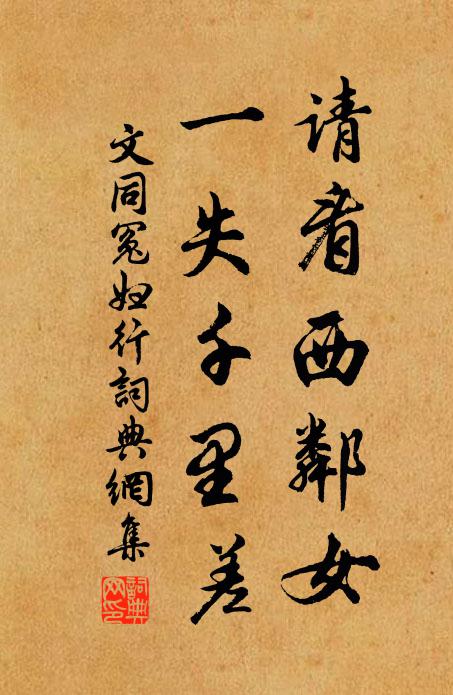 请看西鄰女
一失千里差
文同冤妇行詞典網集
詞典网印